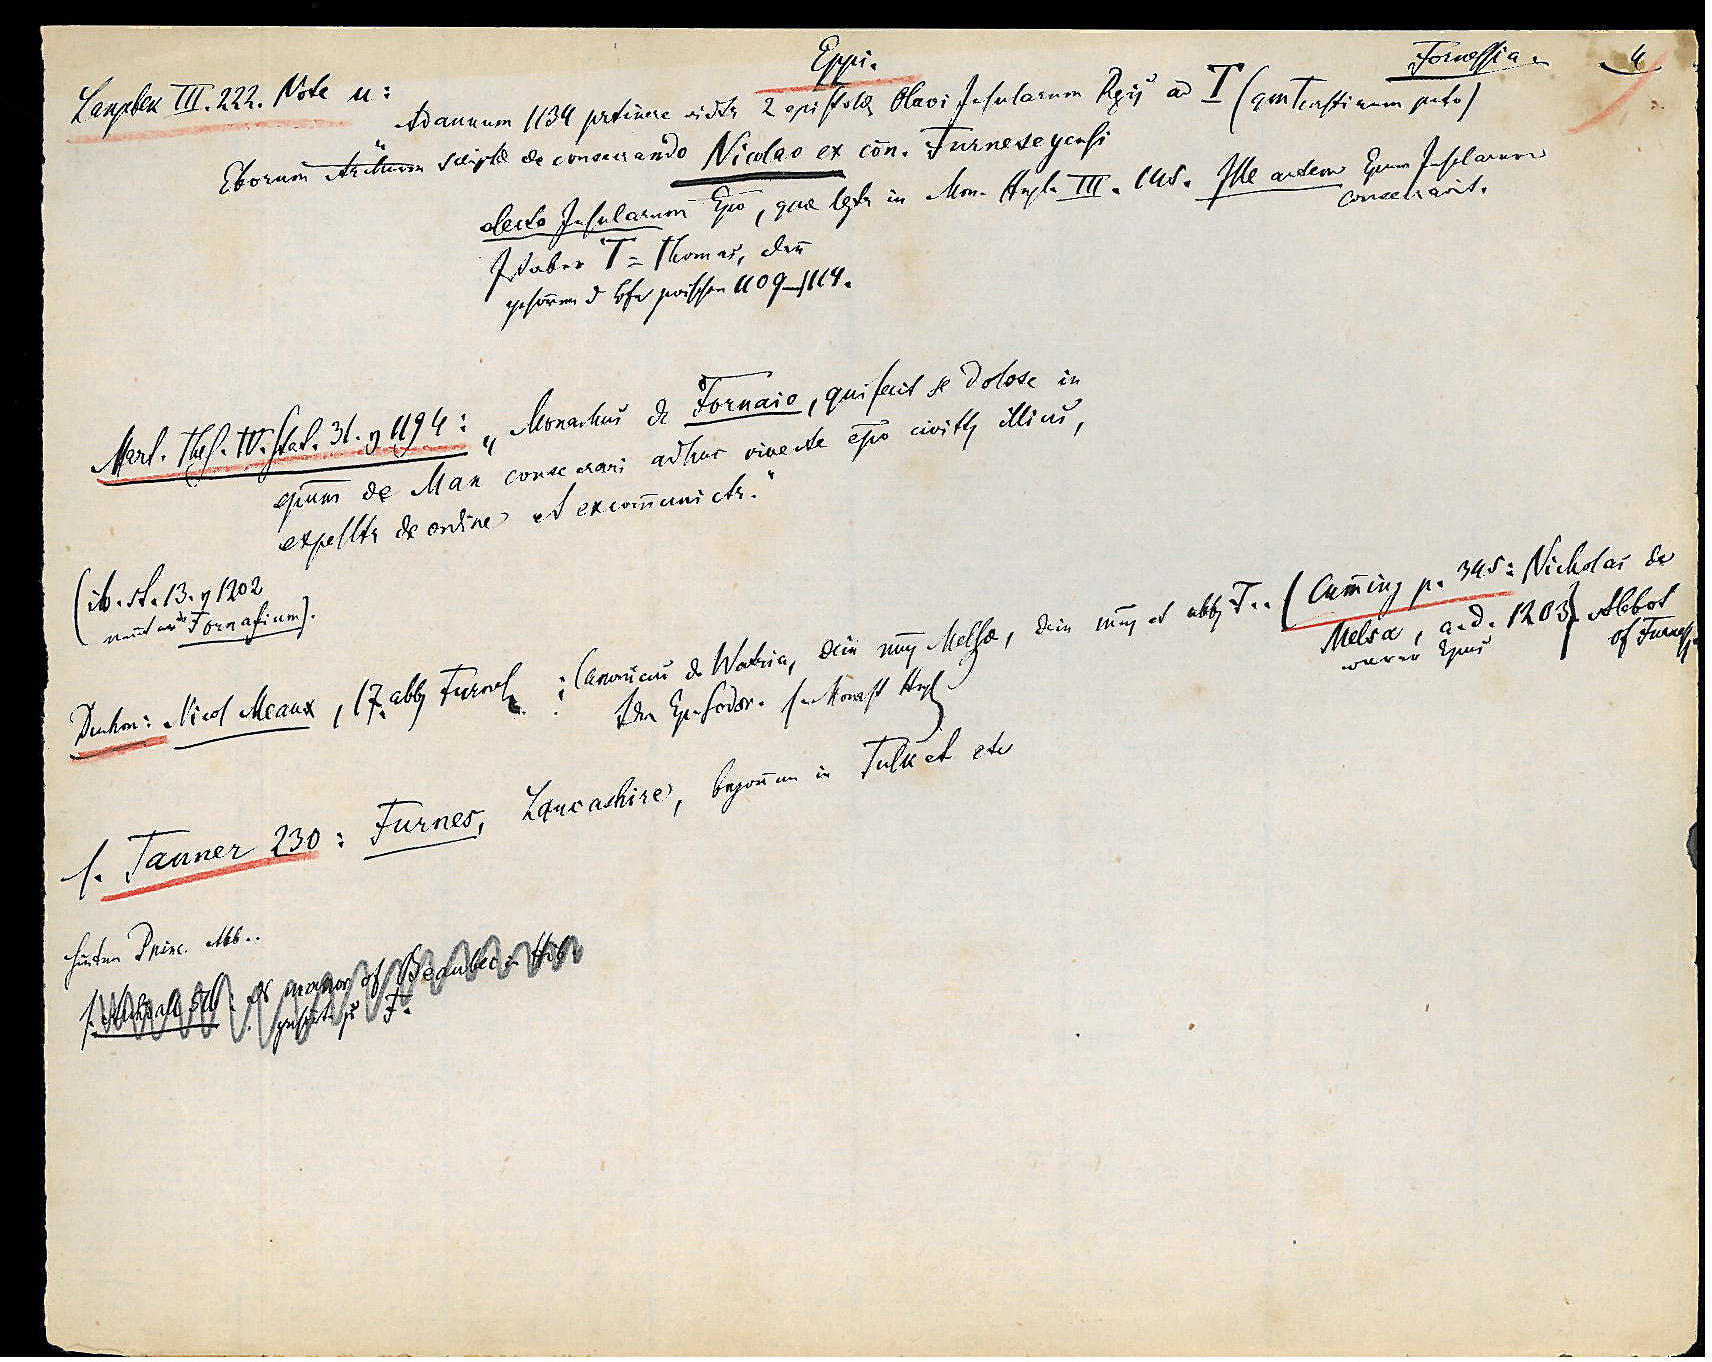 Eppi.
Fornessia. 4
Langebek III. 222. Note u:
Ad annum 1134 ptinere vidtr 2 epistolæ Olavi Insularum Regis ad T (Turstinum puto)
Eborum scriptæ de consecrando Nicolao ex cōn. Furneseyensi
electo Insularum Epo, quæ legtr in Mon. Angl. III. 145. Ille autem Epum Insularum
consecravit.
Ist aber T = Thomas, dann
zwischen 1109–1114.
Mart. Thes. IV. stat. 31. 1194: „Monachus de Fornaio, qui fecit se dolose in
epum de Man consecrari adhuc vivente epo civitts illius,
expelltr de ordine et excommunictr."
(ib. st. 13. 1202
nennt Fornasium).
Nicol Meaux, 17. abb Furnes: Canonicus de Watria, dein Melsæ, dein et abb F.. (Cuming p. 345: Nicholas de
Melsa, a.d. 1203 Abbot
of Furness
war Epus
Ep. Sodor. Monast Angl.)
s. Tanner 230: Furnes, Lancashire, begonnen in Tulket etc
hinten Princ. Abb..
manor of Beaubec in
F.